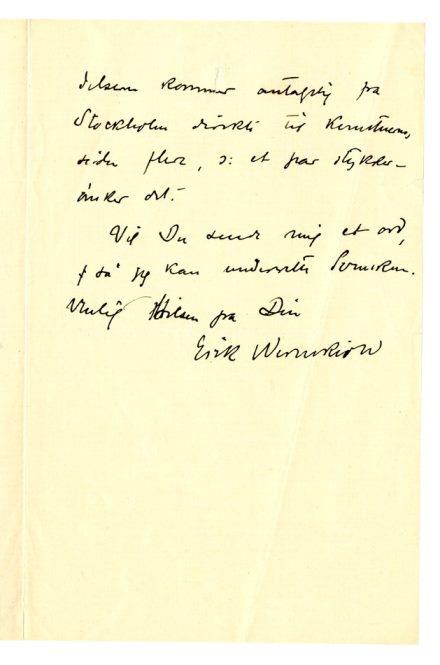 kommer antagelig fra
Stockholm direkte til
siden flere, ɔ: et par stykker –
ønsker det.
Vil Du sende mig et ord,
så jeg kan underrette
Venlig Hilsen fra Din
Erik Werenskiold